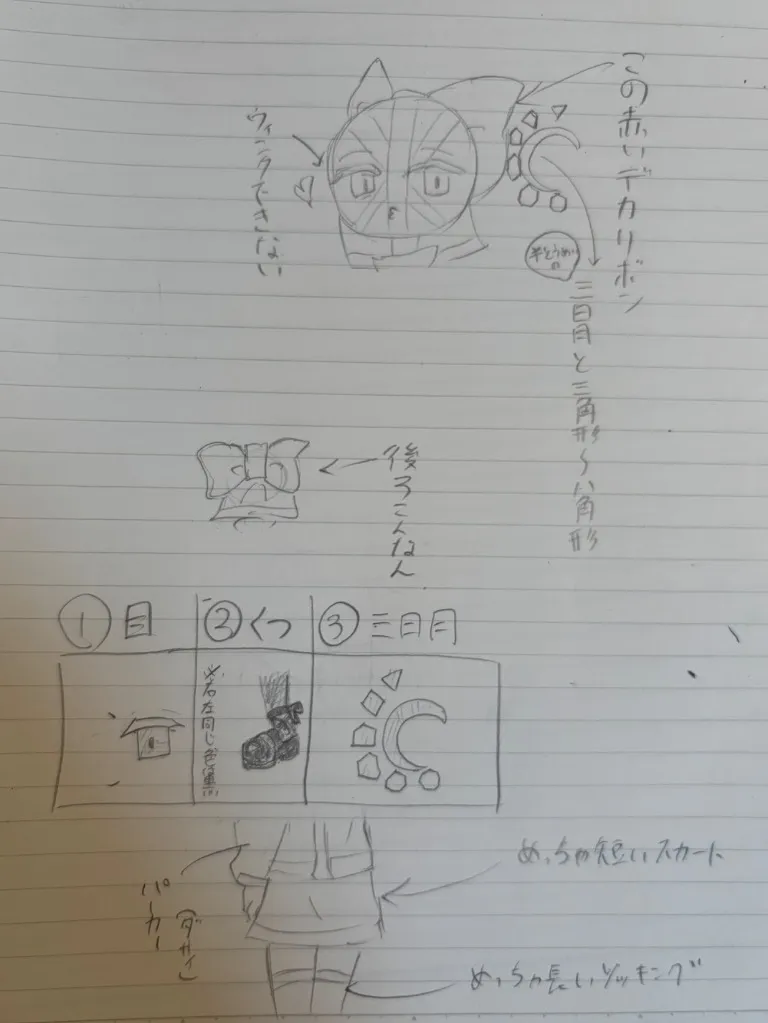 この赤いデカリボン
ウィンクできない
半とうめいの
三日月と三角形〜八角形
後ろこんなん
① 目
② くつ
③ 三日月
※右左同じ色
めっちゃ短いスカート
パーカー
(ダサイ)
めっちゃ長いソッキング